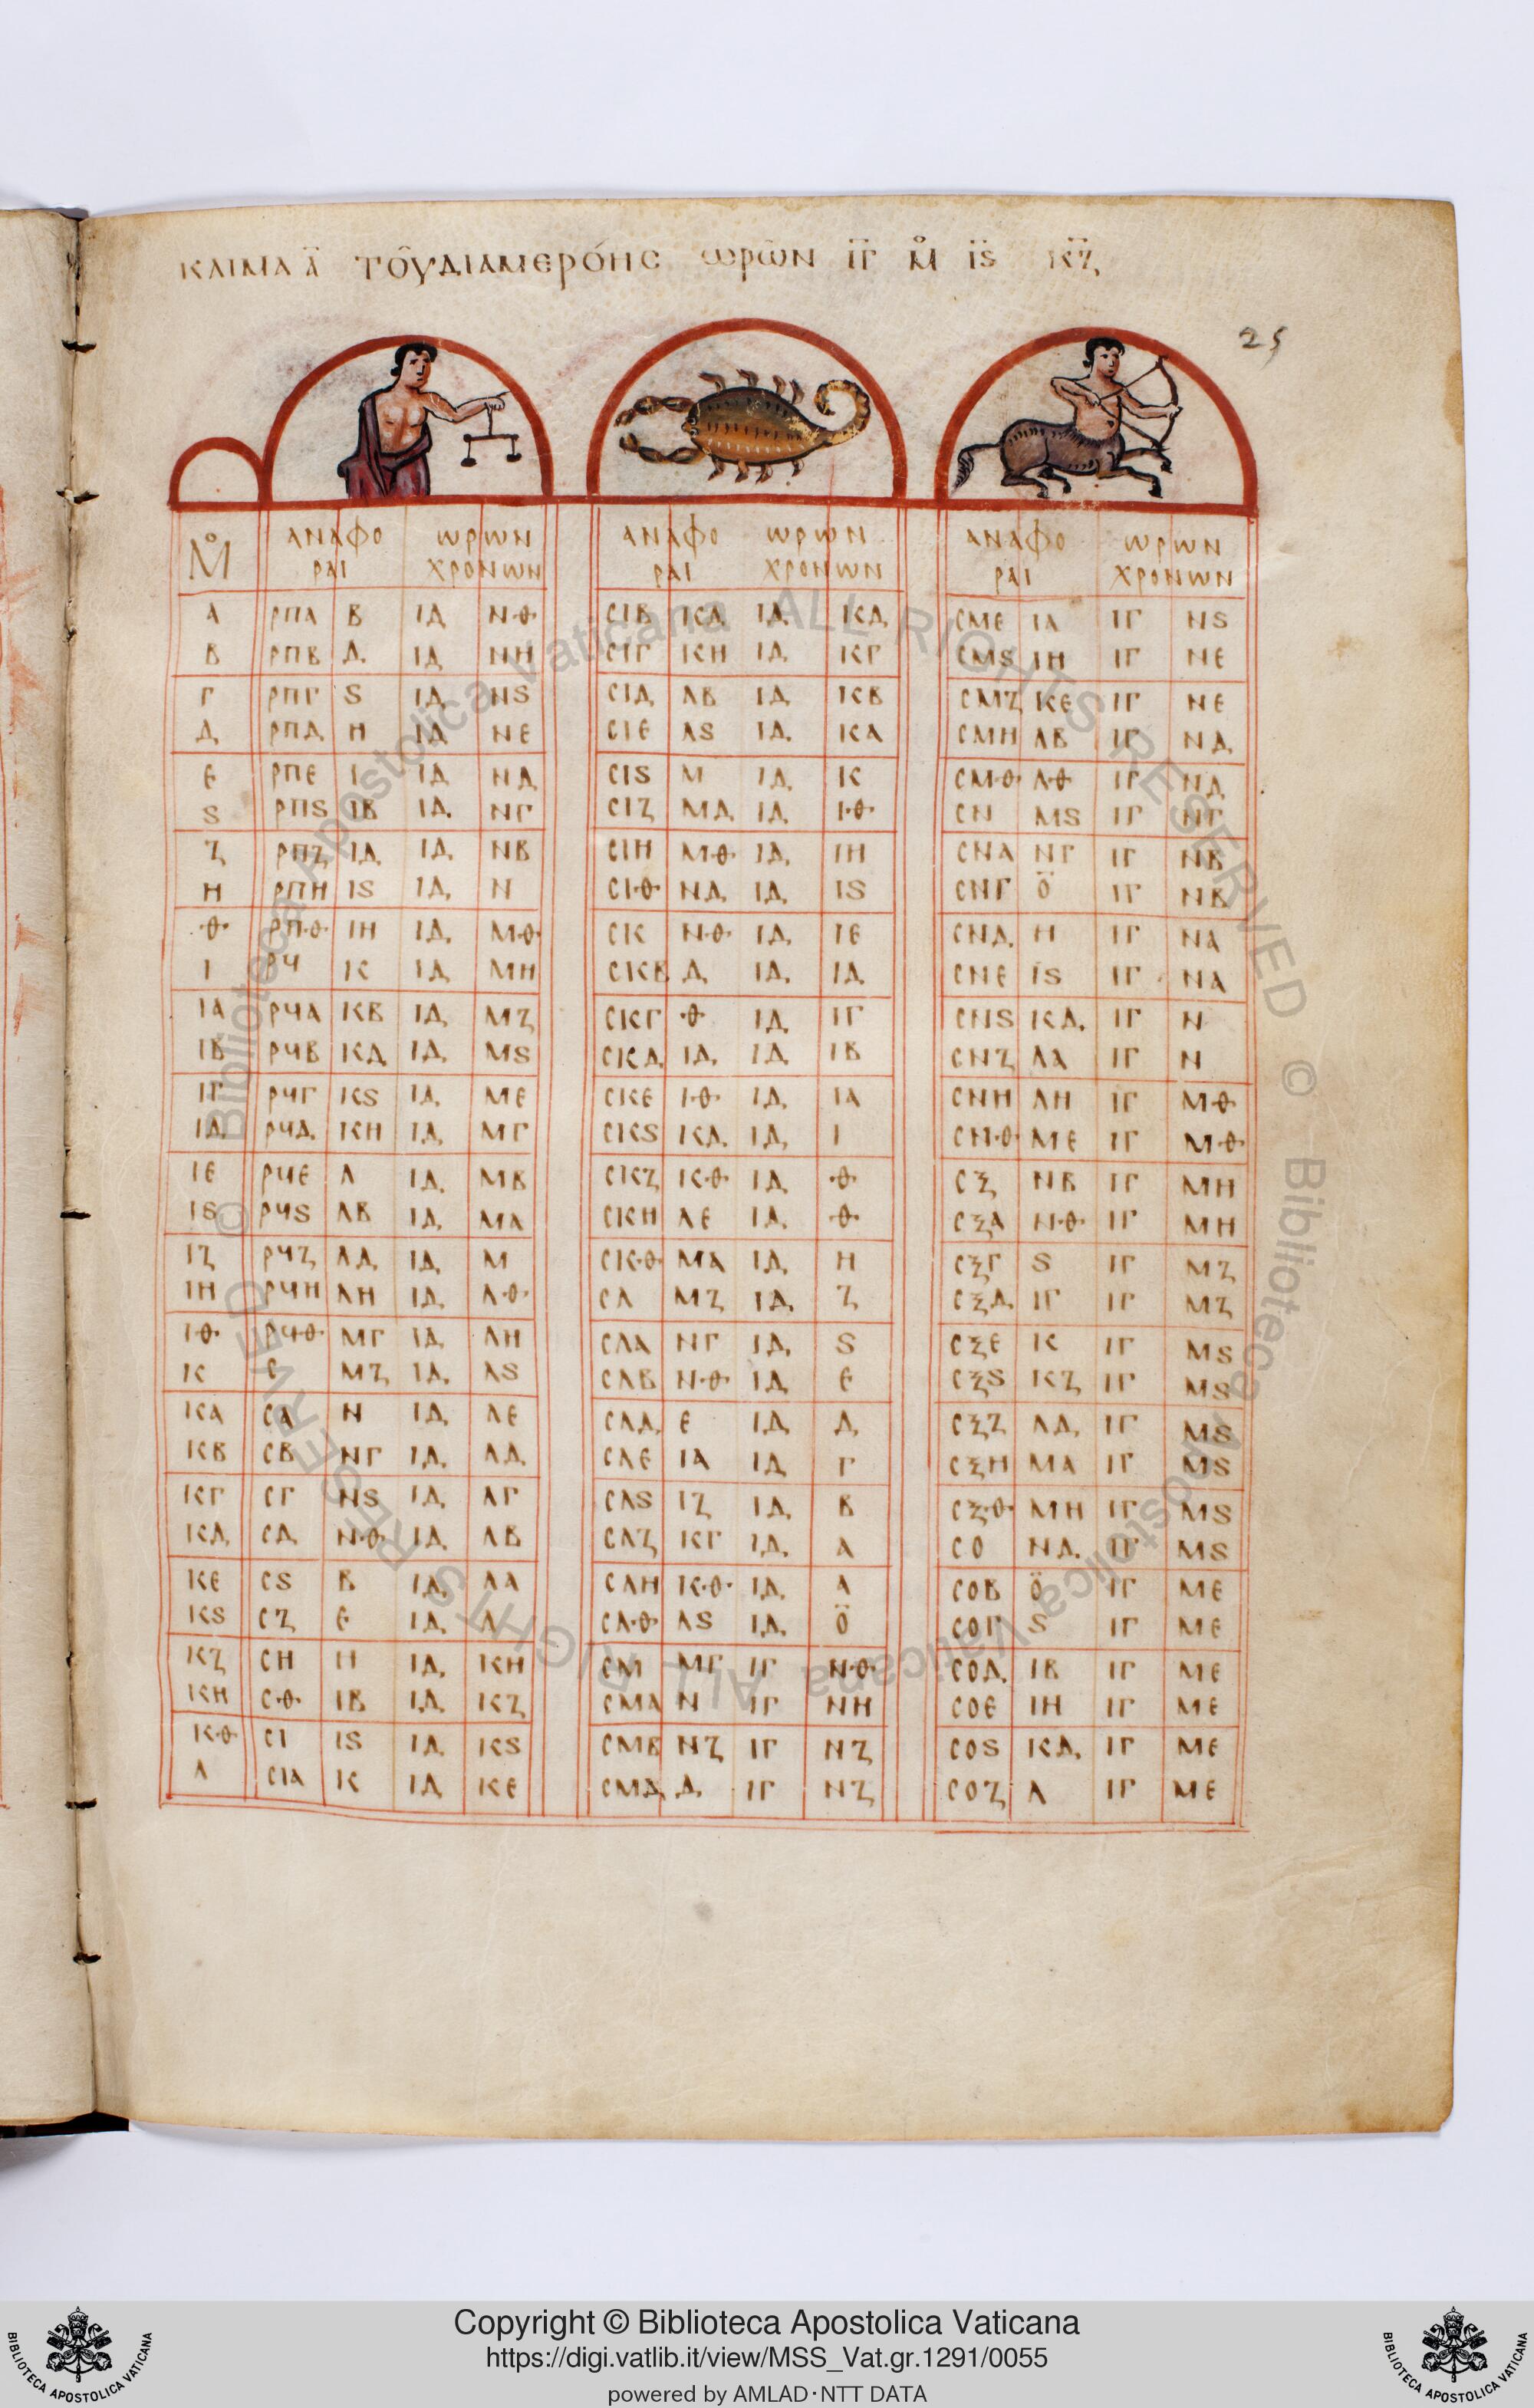 ΚΛΙΜΑ Α̅ ΤΟΥ͂ ΔΙΑ ΜΕΡΌΗC ωΡῶΝ ΙΓ Μ̊ ΙS ΚΖ
25
Μ̊ ΑΝΑΦΟ ωΡωΝ ΑΝΑΦΟ ωΡωΝ ΑΝΑΦΟ ωΡωΝ
ΡΑΙ ΧΡΟΝωΝ ΡΑΙ ΧΡΟΝωΝ ΡΑΙ ΧΡΟΝωΝ
Α ΡΠΑ Β ΙΔ ΝΘ CΙΒ ΚΔ ΙΔ ΚΔ CΜΕ ΙΑ ΙΓ ΝS
Β ΡΠΒ Δ ΙΔ ΝΗ CΙΓ ΚΗ ΙΔ ΚΓ CΜS ΙΗ ΙΓ ΝΕ
Γ ΡΠΓ S ΙΔ ΝS CΙΔ ΛΒ ΙΔ ΚΒ CΜΖ ΚΕ ΙΓ ΝΕ
Δ ΡΠΔ Η ΙΔ ΝΕ CΙΕ ΛS ΙΔ ΚΑ CΜΗ ΛΒ ΙΓ ΝΔ
Ε ΡΠΕ Ι ΙΔ ΝΔ CΙS Μ ΙΔ Κ CΜΘ ΛΘ ΙΓ ΝΔ
S ΡΠS ΙΒ ΙΔ ΝΓ CΙΖ ΜΔ ΙΔ ΙΘ CΝ ΜS ΙΓ ΝΓ
Ζ ΡΠΖ ΙΔ ΙΔ ΝΒ CΙΗ ΜΘ ΙΔ ΙΗ CΝΑ ΝΓ ΙΓ ΝΒ
Η ΡΠΗ ΙS ΙΔ Ν CΙΘ ΝΔ ΙΔ ΙS CΝΓ Ο̈ ΙΓ ΝΒ
Θ ΡΠΘ ΙΗ ΙΔ ΜΘ CΚ ΝΘ ΙΔ ΙΕ CΝΔ Η ΙΓ ΝΑ
Ι ΡϤ Κ ΙΔ ΜΗ CΚΒ Δ ΙΔ ΙΔ CΝΕ ΙS ΙΓ ΝΑ
ΙΑ ΡϤΑ ΚΒ ΙΔ ΜΖ CΚΓ Θ ΙΔ ΙΓ CΝS ΚΔ ΙΓ Ν
ΙΒ ΡϤΒ ΚΔ ΙΔ ΜS CΚΔ ΙΔ ΙΔ ΙΒ CΝΖ ΛΑ ΙΓ Ν
ΙΓ ΡϤΓ ΚS ΙΔ ΜΕ CΚΕ ΙΘ ΙΔ ΙΑ CΝΗ ΛΗ ΙΓ ΜΘ
ΙΔ ΡϤΔ ΚΗ ΙΔ ΜΓ CΚS ΚΔ ΙΔ Ι CΝΘ ΜΕ ΙΓ ΜΘ
ΙΕ ΡϤΕ Λ ΙΔ ΜΒ CΚΖ ΚΘ ΙΔ Θ CΞ ΝΒ ΙΓ ΜΗ
ΙS ΡϤS ΛΒ ΙΔ ΜΑ CΚΗ ΛΕ ΙΔ Θ CΞΑ ΝΘ ΙΓ ΜΗ
ΙΖ ΡϤΖ ΛΔ ΙΔ Μ CΚΘ ΜΑ ΙΔ Η CΞΓ S ΙΓ ΜΖ
ΙΗ ΡϤΗ ΛΗ ΙΔ ΛΘ CΛ ΜΖ ΙΔ Ζ CΞΔ ΙΓ ΙΓ ΜΖ
ΙΘ ΡϤΘ ΜΓ ΙΔ ΛΗ CΛΑ ΝΓ ΙΔ S CΞΕ Κ ΙΓ ΜS
Κ C ΜΖ ΙΔ ΛS CΛΒ ΝΘ ΙΔ Ε CΞS ΚΖ ΙΓ ΜS
ΚΑ CΑ Ν ΙΔ ΛΕ CΛΔ Ε ΙΔ Δ CΞΖ ΛΔ ΙΓ ΜS
ΚΒ CΒ ΝΓ ΙΔ ΛΔ CΛΕ ΙΑ ΙΔ Γ CΞΗ ΜΑ ΙΓ ΜS
ΚΓ CΓ ΝS ΙΔ ΛΓ CΛS ΙΖ ΙΔ Β CΞΘ ΜΗ ΙΓ ΜS
ΚΔ CΔ ΝΘ ΙΔ ΛΒ CΛΖ ΚΓ ΙΔ Α CΟ ΝΔ ΙΓ ΜS
ΚΕ CS Β ΙΔ ΛΑ CΛΗ ΚΘ ΙΔ Α CΟΒ Ο̈ ΙΓ ΜΕ
ΚS CΖ Ε ΙΔ Λ CΛΘ ΛS ΙΔ Ο̈ CΟΓ S ΙΓ ΜΕ
ΚΖ CΗ Η ΙΔ ΚΗ CΜ ΜΓ ΙΓ ΝΘ CΟΔ ΙΒ ΙΓ ΜΕ
ΚΗ CΘ ΙΒ ΙΔ ΚΖ CΜΑ Ν ΙΓ ΝΗ CΟΕ ΙΗ ΙΓ ΜΕ
ΚΘ CΙ ΙS ΙΔ ΚS CΜΒ ΝΖ ΙΓ ΝΖ CΟS ΚΔ ΙΓ ΜΕ
Λ CΙΑ Κ ΙΔ ΚΕ CΜΔ Δ ΙΓ ΝΖ CΟΖ Λ ΙΓ ΜΕ
© Biblioteca Apostolica Vaticana ALL RIGHTS RESERVED © Biblioteca Apostolica Vaticana ALL RIGHTS RESERVED
BIBLIOTECA APOSTOLICA VATICANA
Copyright © Biblioteca Apostolica Vaticana
https://digi.vatlib.it/view/MSS_Vat.gr.1291/0055
powered by AMLAD·NTT DATA
BIBLIOTECA APOSTOLICA VATICANA